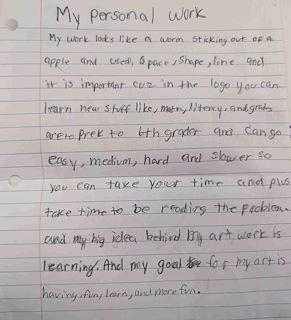 My personal work
My work looks like a worm sticking out of a
apple and used, space, shape, line and
it is important cuz in the logo you can
learn new stuff like, math, literacy, and grads
are to prek to 6th grader and can go
easy, medium, hard and slower so
you can take your time and plus
take time to be reading the problem.
and my big idea behind my art work is
learning. And my goal for my art is
having, fun, learn, and more fun.